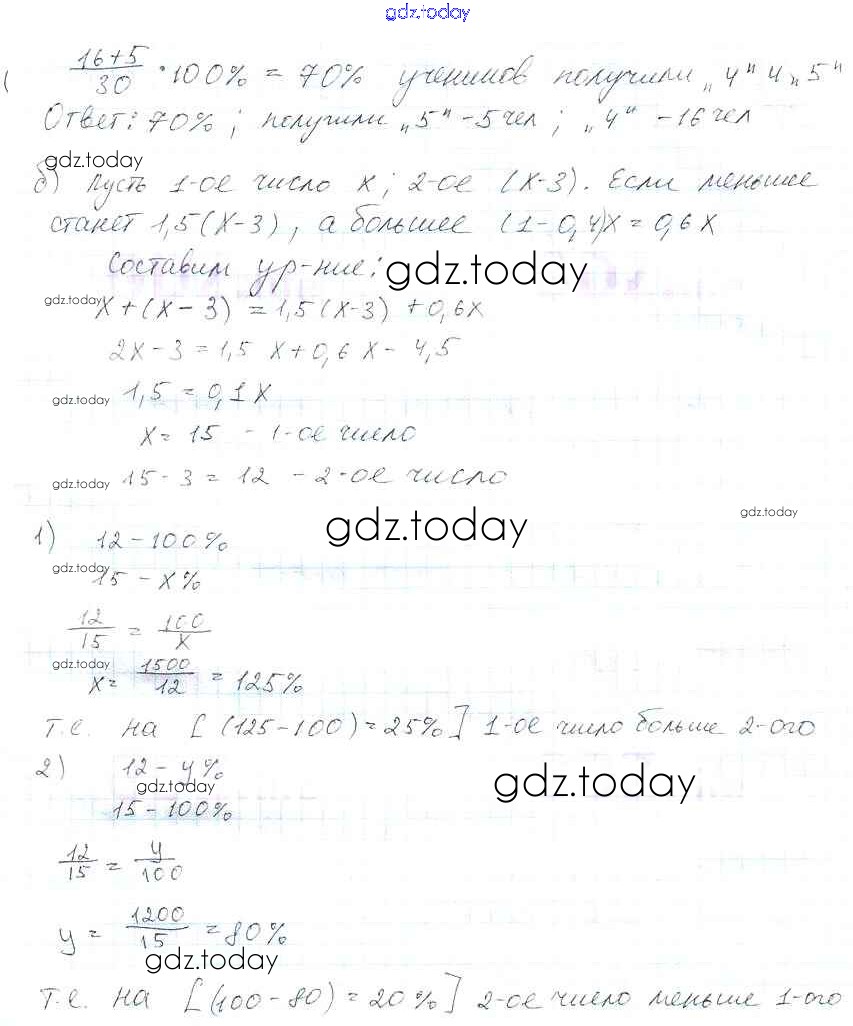 gdz.today
(16+5)/30 · 100% = 70% учеников получили „4" и „5"
Ответ: 70%; получили „5" - 5 чел; „4" - 16 чел
gdz.today
б) Пусть 1-ое число x; 2-ое (x-3). Если меньшее
станет 1,5(x-3), а большее (1-0,4)x = 0,6x
Составим ур-ние: gdz.today
gdz.today x + (x - 3) = 1,5(x-3) + 0,6x
2x - 3 = 1,5x + 0,6x - 4,5
gdz.today 1,5 = 0,1x
x = 15 - 1-ое число
gdz.today 15 - 3 = 12 - 2-ое число
gdz.today gdz.today
1) 12 - 100%
gdz.today 15 - x%
12/15 = 100/x
gdz.today x = 1500/12 = 125%
т.е. на [(125-100) = 25%] 1-ое число больше 2-ого
2) 12 - y%
gdz.today gdz.today
15 - 100%
12/15 = y/100
y = 1200/15 = 80%
gdz.today
т.е. на [(100-80) = 20%] 2-ое число меньше 1-ого